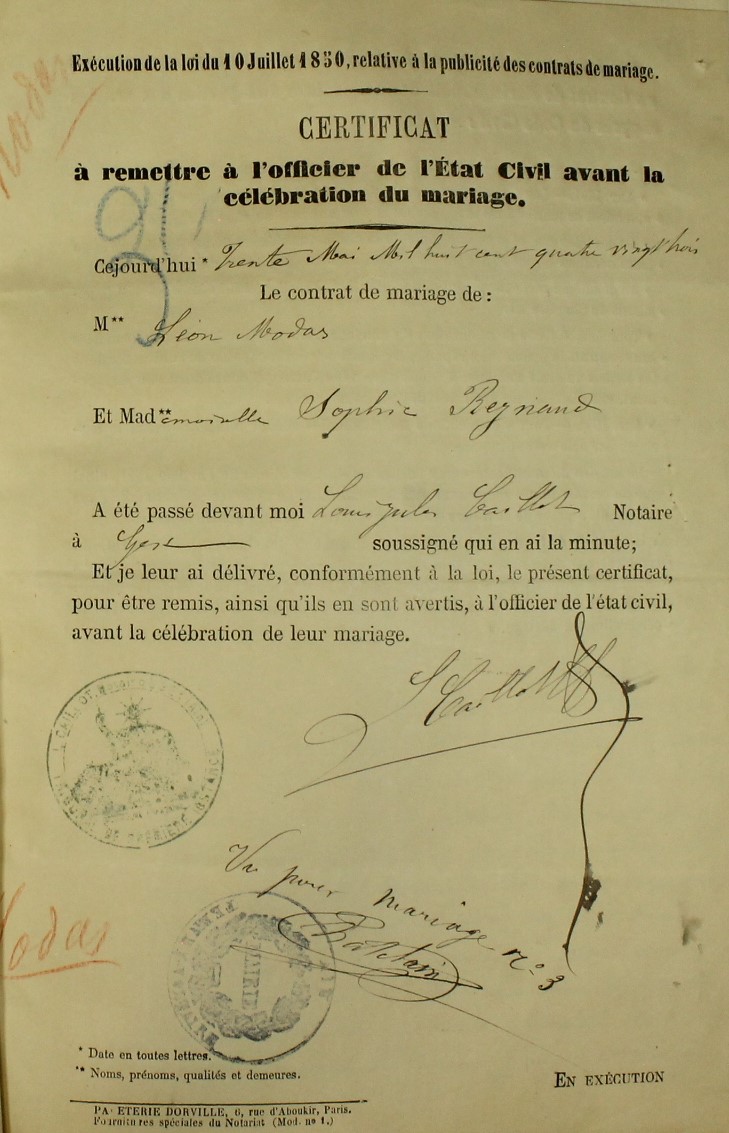 Modas
Exécution de la loi du 10 Juillet 1850, relative à la publicité des contrats de mariage.
CERTIFICAT
à remettre à l'officier de l'État Civil avant la
célébration du mariage.
Cejourd'hui * Trente Mai Mil huit cent quatre vingt trois
Le contrat de mariage de :
M** Léon Modas
Et Mad**emoiselle Sophie Reynaud
A été passé devant moi Louis Jules Caillot Notaire
à soussigné qui en ai la minute;
Et je leur ai délivré, conformément à la loi, le présent certificat,
pour être remis, ainsi qu'ils en sont avertis, à l'officier de l'état civil,
avant la célébration de leur mariage.
Caillot
Vu pour mariage n° 3
odas
MAIRIE
* Date en toutes lettres.
** Noms, prénoms, qualités et demeures.
EN EXÉCUTION
PA ETERIE DORVILLE, 6, rue d'Aboukir, Paris.
Fournitures spéciales du Notariat (Mod. n° 1.)